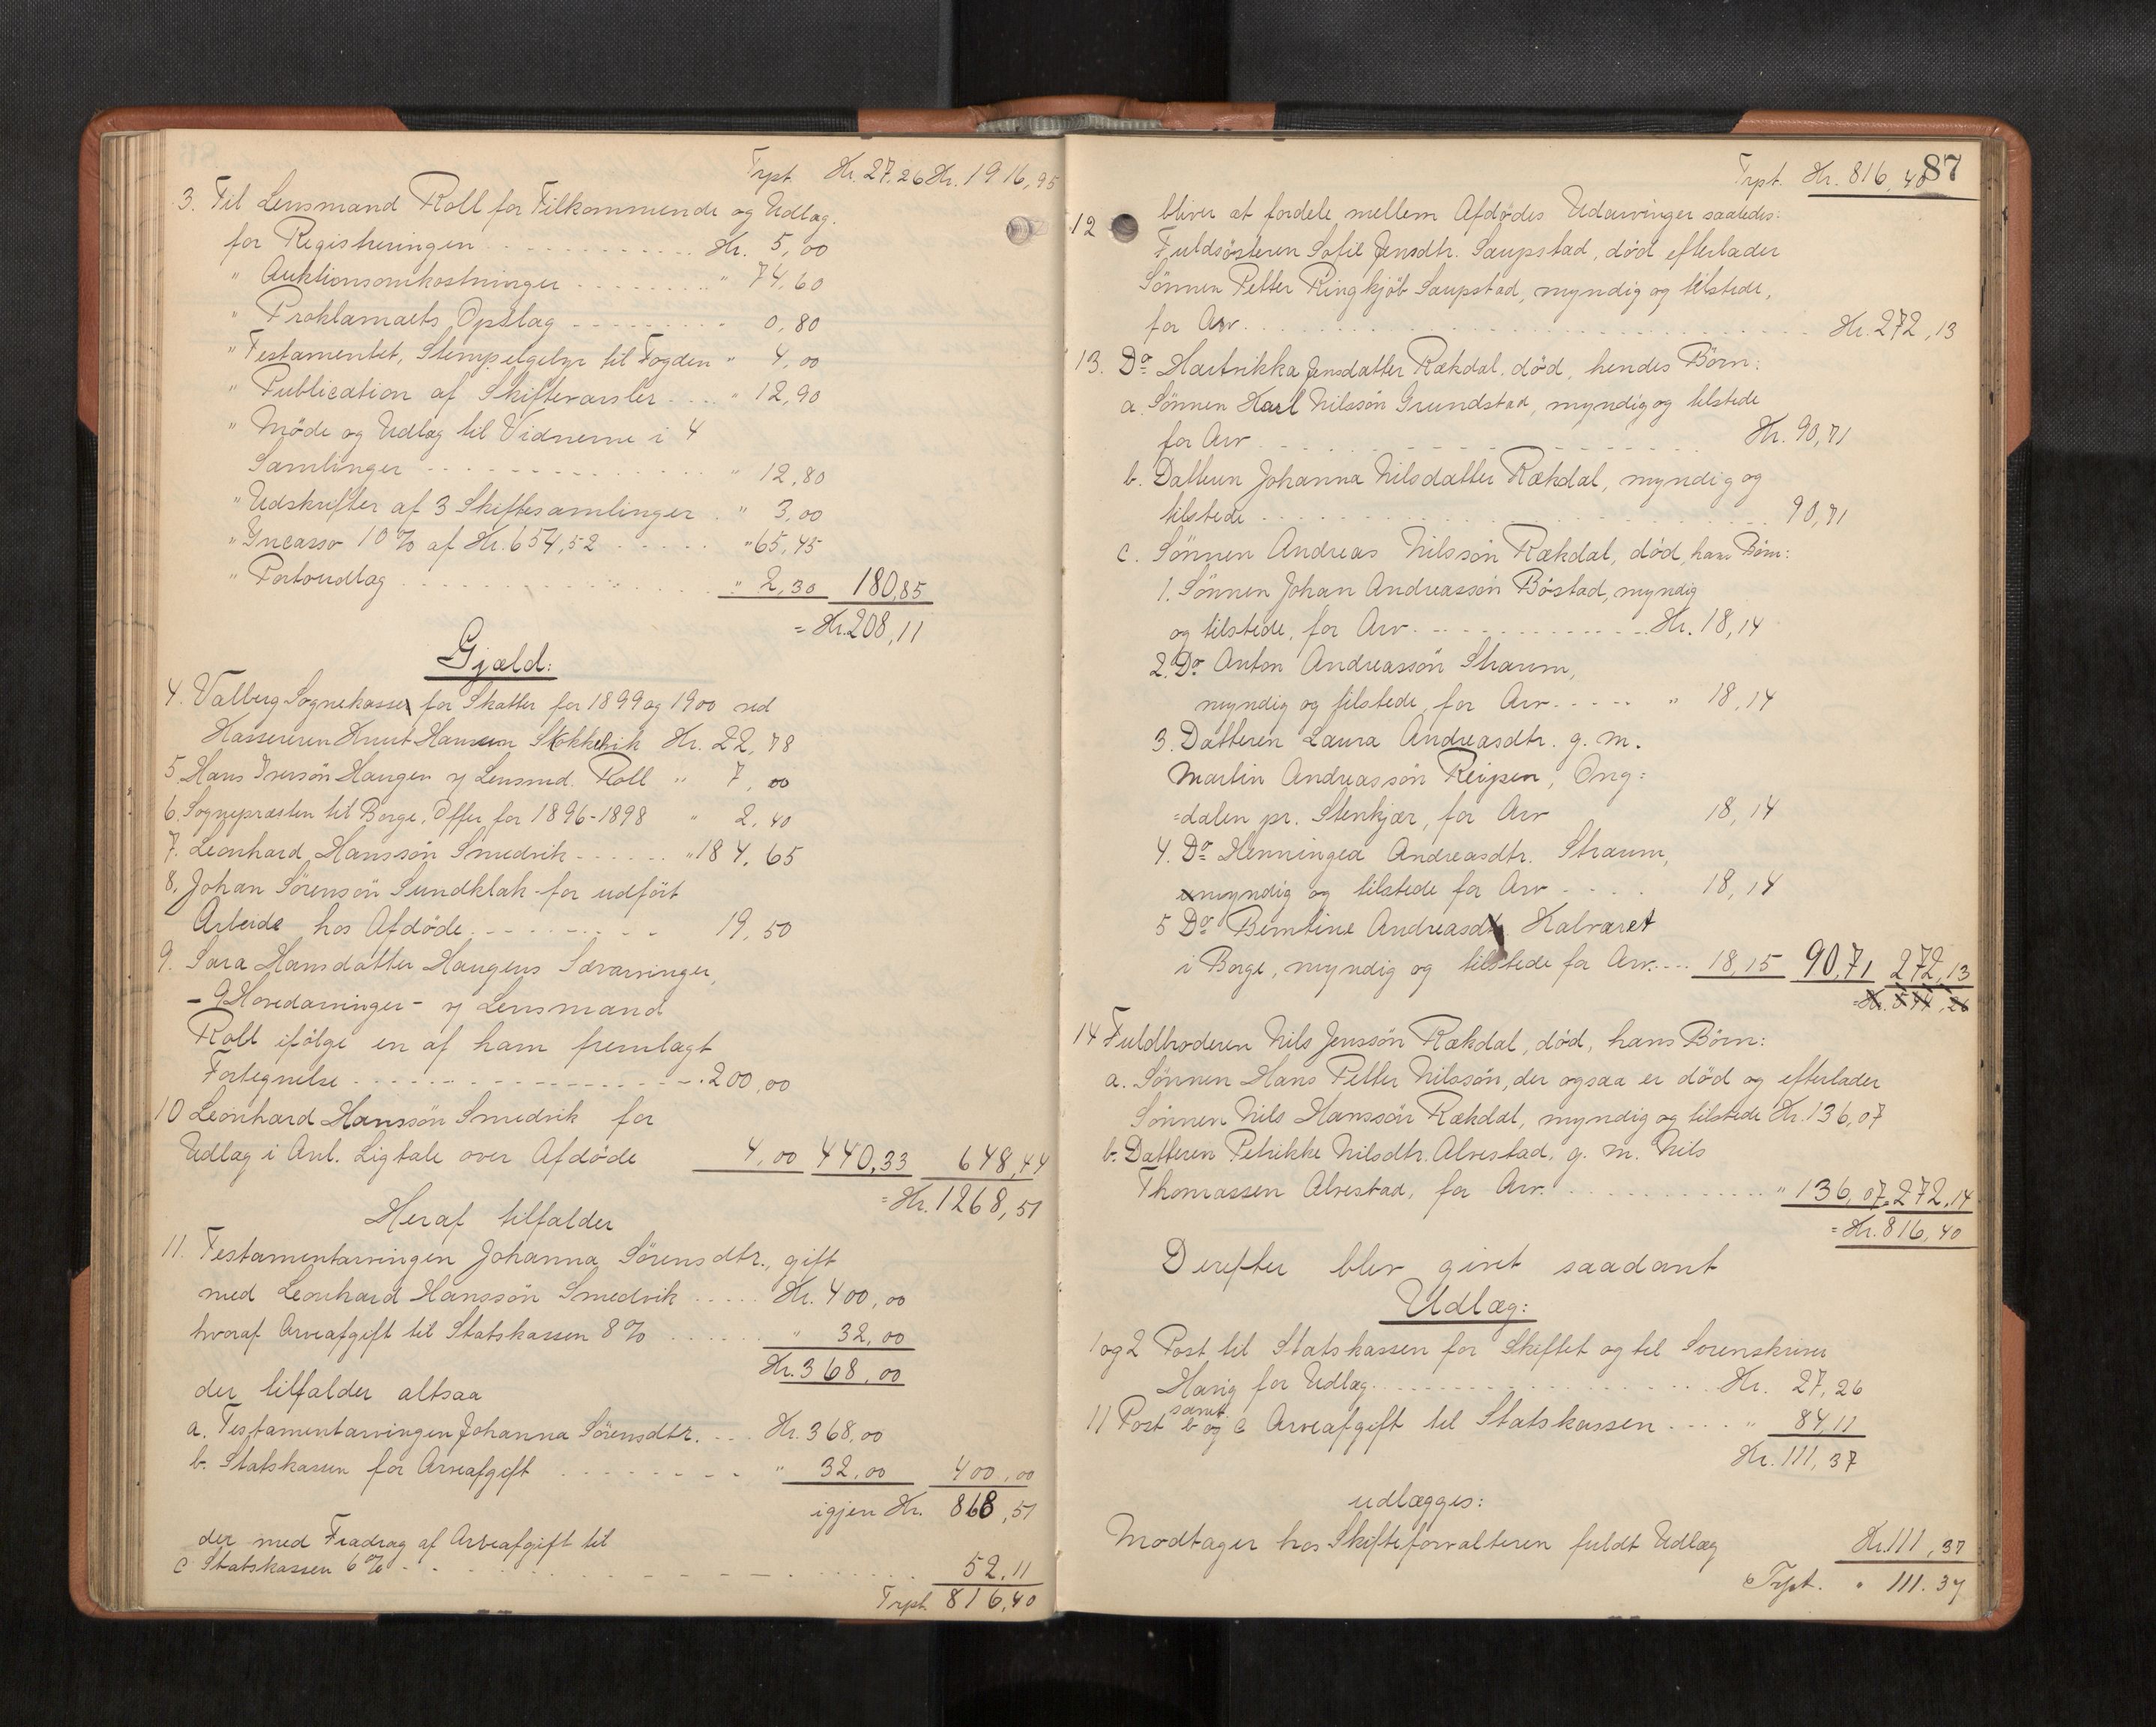 Trpt. Kr. 27,26 Kr. 1916,95
3. Til Lensmand Roll for Tilkommende og Udlæg.
for Registreringen Kr. 5,00
" Auktionsomkostninger " 74,60
" Proklamaets Opslag 0,80
" Testamentet, Stempelgebyr til Fogden " 4,00
" Publication af Skiftevarsler " 12,90
" Möde og Udlæg til Vidnerne i 4
Samlinger " 12,80
" Udskrifter af 3 Skiftesamlinger " 3,00
" Incasso 10% af Kr. 654,52 " 65,45
" Portoudlæg " 2,30 180,85
= Kr. 208,11
Gjæld:
4. Valberg Sognekasse for Skatter for 1899 og 1900 ved
Kassereren Knut Hansen Stokkevik Kr. 22,78
5. Hans Iversön Haugen v/ Lensmd. Roll " 7,00
6. Sognepræsten til Borge, Offer for 1896-1898 " 2,40
7. Leonhard Hanssön Smedvik " 184,65
8. Johan Sörensön Sundklak for udfört
Arbeide hos Afdöde 19,50
9. Sara Hansdatter Haugens Særarvinger,
- 9 Hovedarvinger - v/ Lensmand
Roll ifölge en af ham fremlagt
Fortegnelse 200,00
10 Leonhard Hanssön Smedvik for
Udlæg i Anl. Ligtale over Afdöde 4,00 440,33 648,44
= Kr. 1268,51
Heraf tilfalder
11. Testamentarvingen Johanna Sörensdtr., gift
med Leonhard Hanssön Smedvik Kr. 400,00
hvoraf Arveafgift til Statskassen 8% " 32,00
Kr. 368,00
der tilfalder altsaa
a. Testamentarvingen Johanna Sörensdtr. Kr. 368,00
b. Statskassen for Arveafgift " 32,00 400,00
igjen Kr. 868,51
der med Fradrag af Arveafgift til
c Statskassen 6% 52,11
Trpt. 816,40
87
Trpt. Kr. 816,40
bliver at fordele mellem Afdödes Udarvinger saaledes:
12 Fuldsösteren Sofie Jensdtr. Saupstad, död efterlader
Sönnen Petter Ringkjöb Saupstad, myndig og tilstede,
for Arv Kr. 272,13
13. Do Hartvikka Jensdatter Rækdal, död, hendes Börn:
a. Sönnen Karl Nilssön Grundstad, myndig og tilstede
for Arv Kr. 90,71
b. Datteren Johanna Nilsdatter Rækdal, myndig og
tilstede 90,71
c. Sönnen Andreas Nilssön Rækdal, död, hans Börn:
1. Sönnen Johan Andreassön Böstad, myndig
og tilstede, for Arv Kr. 18,14
2. Do Anton Andreassön Straum,
myndig og tilstede, for Arv " 18,14
3. Datteren Laura Andreasdtr. g. m.
Martin Andreassön Reipen, Ong=
=dalen pr. Stenkjær, for Arv 18,14
4. Do Henningea Andreasdtr. Straum,
myndig og tilstede for Arv 18,14
5 Do Berntine Andreasdt. Kalvaret
i Borge, myndig og tilstede for Arv 18,15 90,71 272,13
= Kr. 544,26
14 Fuldbroderen Nils Jenssön Rækdal, död, hans Börn:
a. Sönnen Hans Petter Nilssön, der ogsaa er död og efterlader
Sönnen Nils Hanssön Rækdal, myndig og tilstede Kr. 136,07
b. Datteren Petrikke Nilsdtr. Alvestad, g. m. Nils
Thomassen Alvestad, for Arv. " 136,07 = 272,14
= Kr. 816,40
Derefter blev givet saadant
Udlæg:
1 og 2 Post til Statskassen for Skiftet og til Sorenskriver
Harig for Udlæg Kr. 27,26
11 Post b og samt c Arveafgift til Statskassen " 84,11
Kr. 111,37
udlægges:
Modtager hos Skifteforvalteren fuldt Udlæg Kr. 111,37
Trpt. " 111.37